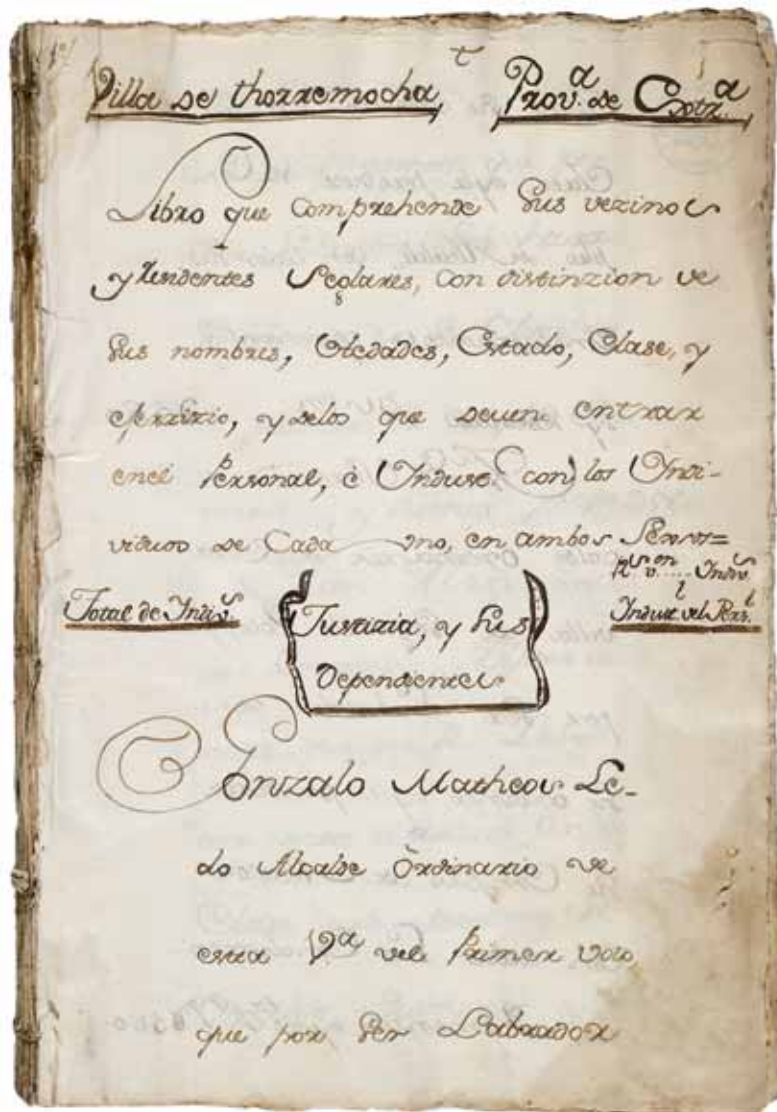 Villa de thorremocha, Prov.a de Extr.a
Libro que Comprehende Sus vezinos
y Residentes Seglares, con distinzion de
Sus nombres, Hedades, Estado, Clase, y
exerzizio, y delos que deven entrar
enel Personal, è Yndust.l con los Yndi-
viduos de Cada vno, en ambos Sexos=
Yndiv.s
Total de Indiv.s
Justizia, y Sus
Yndust.l del Pers.l
Dependientes
Gonzalo Matheos Le-
do Alcalde Ordinario de
esta V.a del Primer Voto,
que por Ser Labrador